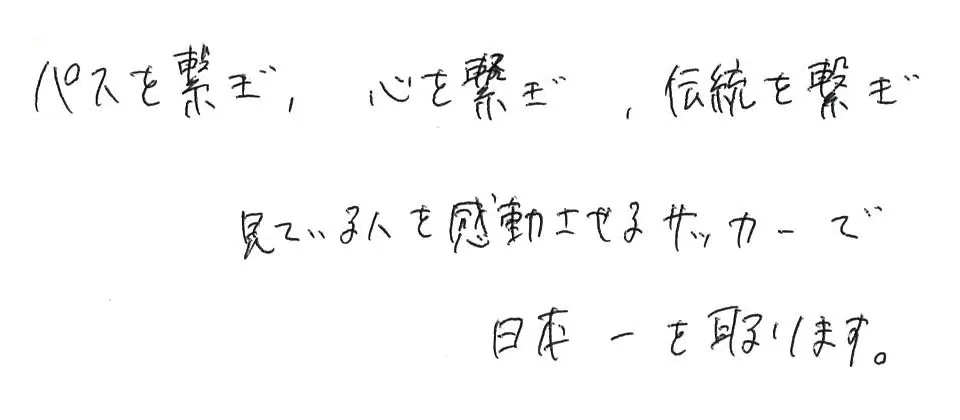 パスを繋ぎ, 心を繋ぎ, 伝統を繋ぎ
見ている人を感動させるサッカーで
日本一を取ります。